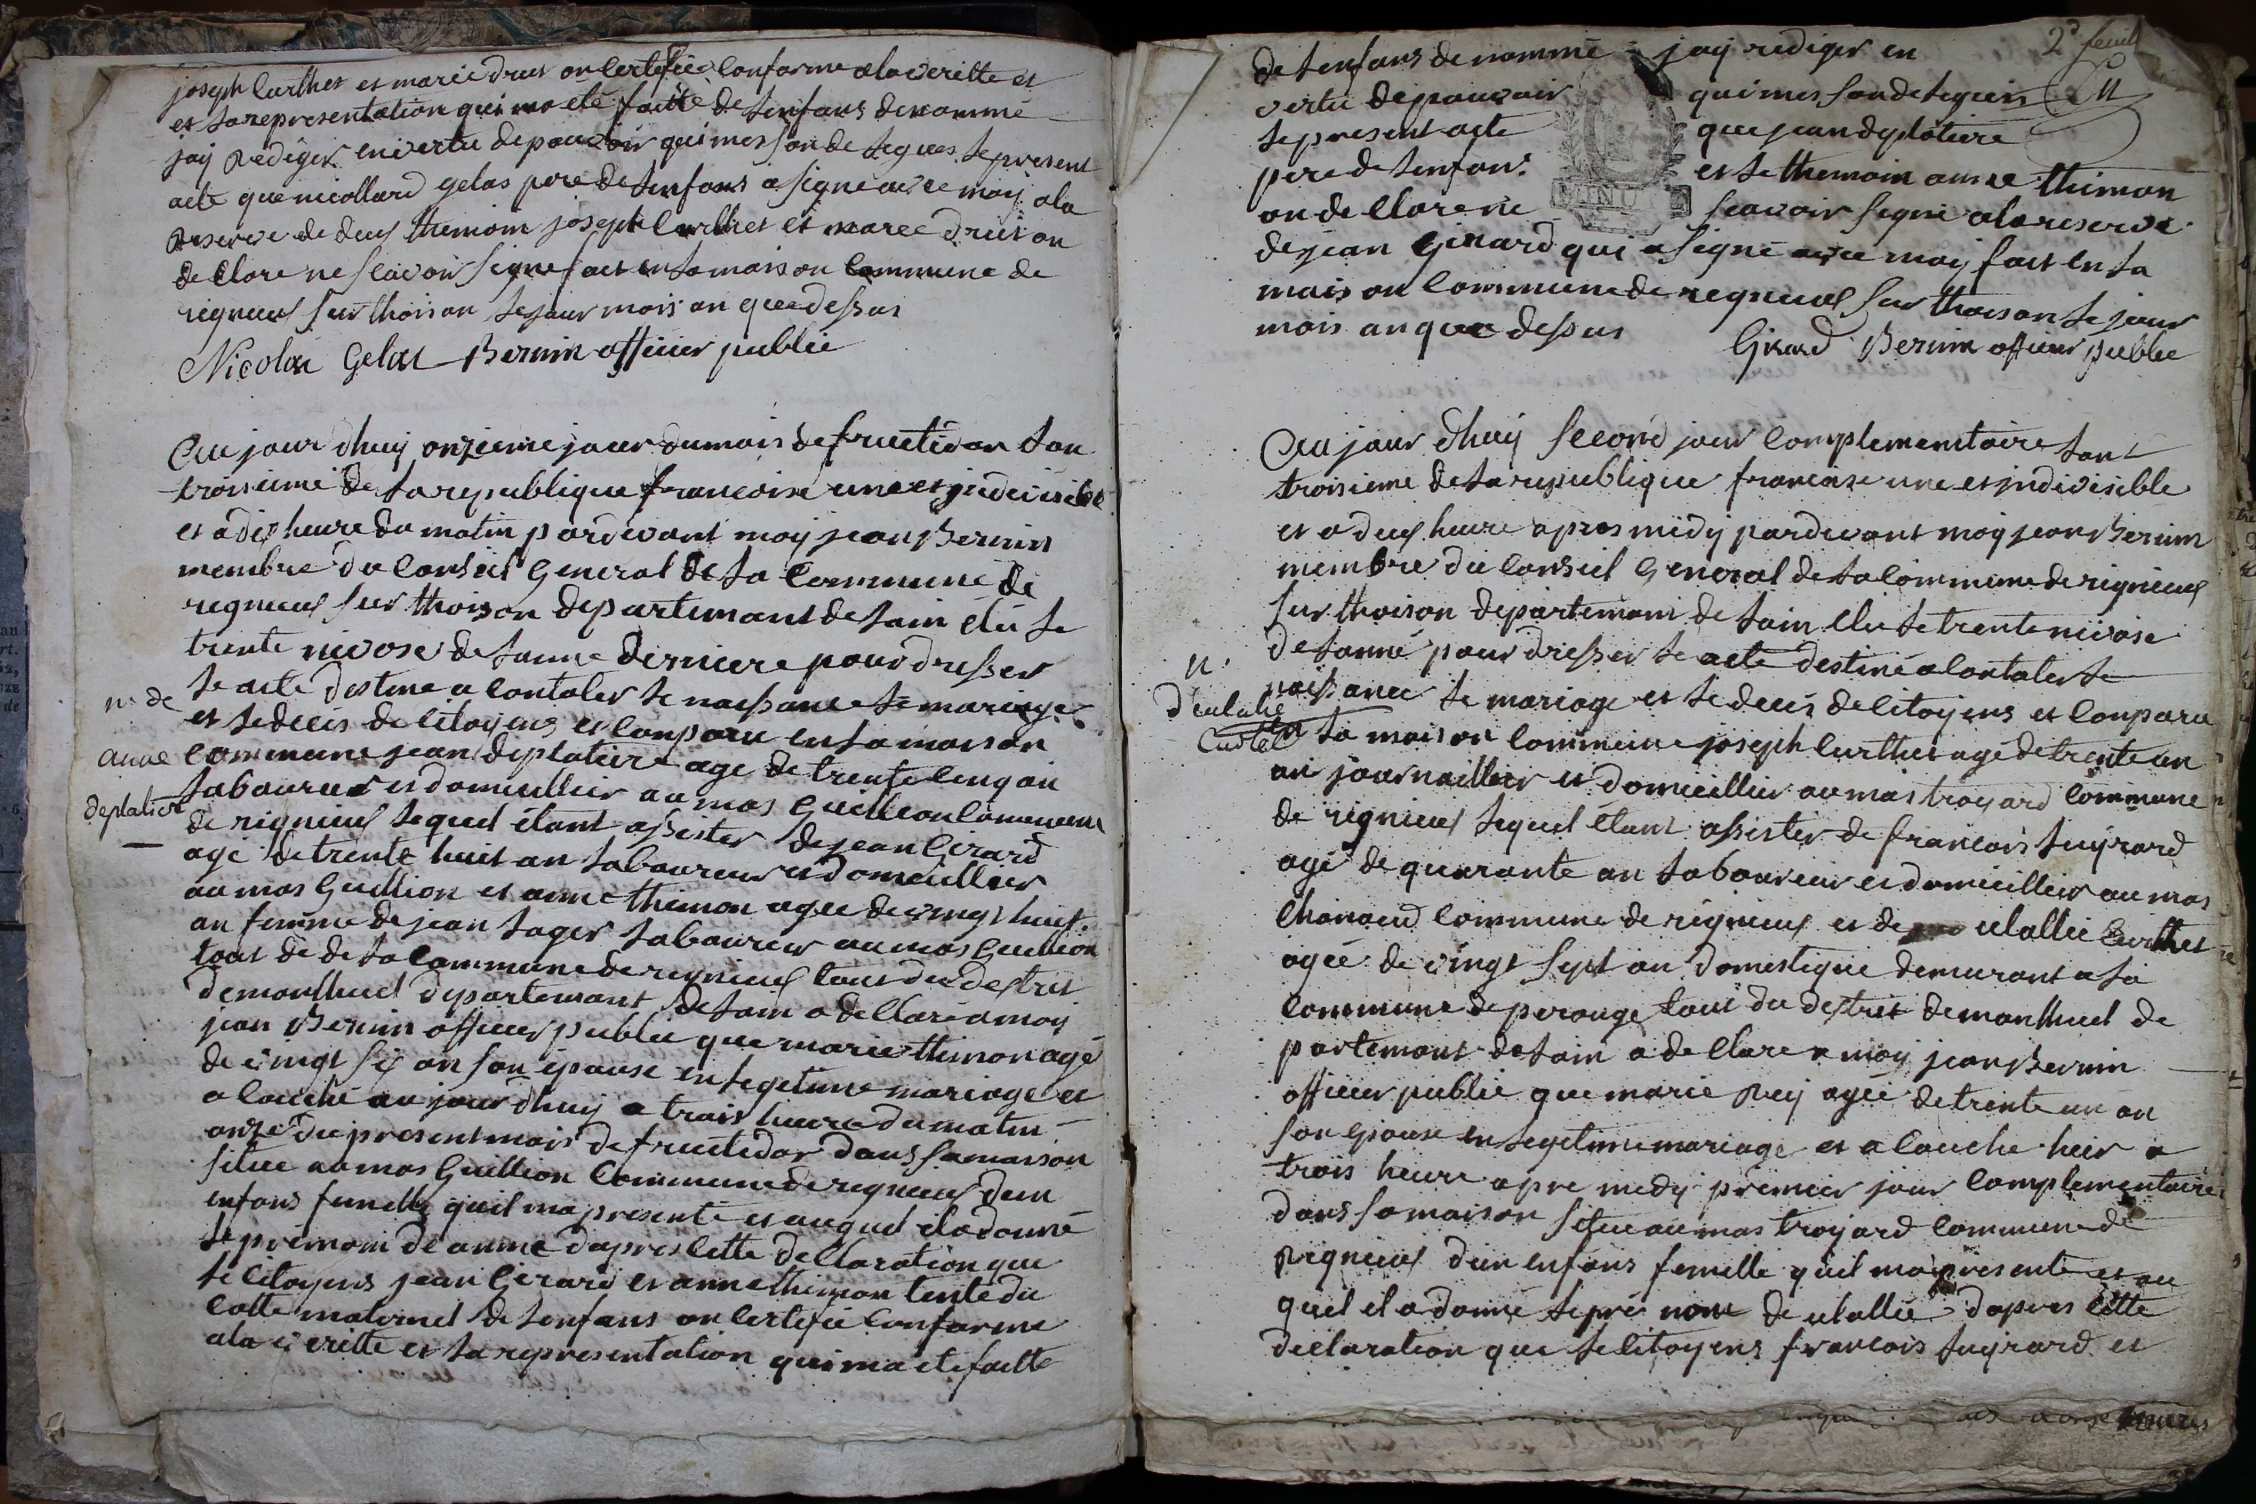 joseph Curthet et marie druet on Certifiée Conforme a la veritte et
et la representation qui ma eté faitte de lenfans denommé
jaÿ rediger en vertu de pouvoir qui mes son de legues le present
acte que nicollard gelas pere de lenfans a signé avec moÿ a la
reserve de deux themoin joseph Curthet et marie druet on
de Clare ne scavoir signe fait en la maison Commune de
rigneux sur thoison le jour mois an que dessus
Nicolas Gelas Bernin officier public
Au jour dhuy onzieme jour du mois de fructidor lan
troisieme de la republique francoise une et jndivisible
et a dix heure du matin pardevant moÿ jean Bernin
membre du Conseil General de la Commune de
rigneux sur thoison departemant de lain elu le
trente nivose de lanne derniere pour dresser
le acte destine a Contater le naissance le mariage
et le deces de Citoyens et Conparu en la maison
Commune jean deplatiere age de trente Cinq an
laboureur et domicillier au mas Guillion Commune
de rigneux lequel étant assister de jean Girard
agé de trente huit an laboureur et domicillier
au mas Guillion et anne thimon agee de vingt huit
an femme de jean lager laboureur au mas Guillion
tout de de la Commune de rigneux tout du destrit
de montluel departemant de lain a de Claré a moy
jean Bernin officier public que marie thimon agé
de vingt six an son épouse en legetime mariage et
a Couché au jour dhuy a trois heure du matin
onze du present mois de fructidor dans sa maison
situe au mas Guillion Commune de rigneux dun
enfans femelle quil ma presenté et auquel il a donné
le prenom de anne dapres Cette declaration que
le Citoyens jean Girard et anne thimon tente du
Cotte maternel de lenfans on Certifié Conforme
a la veritte et la representation qui ma ete faitte
n. de
anne
deplatiere
2e feuil
de lenfans denommé jaÿ rediger en
vertu de pouvoir qui mes son de legues
le present acte que jean deplatiere
pere de lenfans et le themoin anne thimon
on de Clare ne scavoir signe a la reserve
MINUTE
de jean Girard qui a signé avec moÿ fait en la
maison Commune de rigneux sur thoison le jour
mois an que dessus
Girard Bernin officier public
Au jour dhuÿ second jour Complementaire lant
troisieme de la republique francaise une et jndivisible
et a deux heure apres midÿ pardevant moÿ jean Bernin
membre du Conseil General de la Commune de rigneux
sur thoison departemant de lain elu le trente nivose
de lanné pour dresser le acte destiné a Contater le
naissance le mariage et le decés de Citoyens et Conparu
en la maison Commune joseph Curthet agé de trente un
an journaillier et domicillier au mas troyard Commune
de rigneux lequel étant assister de francois luÿrard
agé de quarante an laboureur et domicillier au mas
Chanaud Commune de rigneux et de ulallie Curthet
agée de vingt sept an domestique demeurant a la
Commune de perouge tout du destrit de montluel de
partemant de lain a de Clare a moÿ jean Bernin
officier public que marie reÿ agée de trente un an
son epouse en legetime mariage et a Couche hier a
trois heure apre medÿ premier jour Complementaire
dans sa maison situe au mas troyard Commune de
rigneux dun enfans femelle quil ma presenté et au
quel il a donné le pré nom de ulallie dapres Cette
declaration que le Citoyens francois luÿrard et
n.
d'eulalie
Curtet